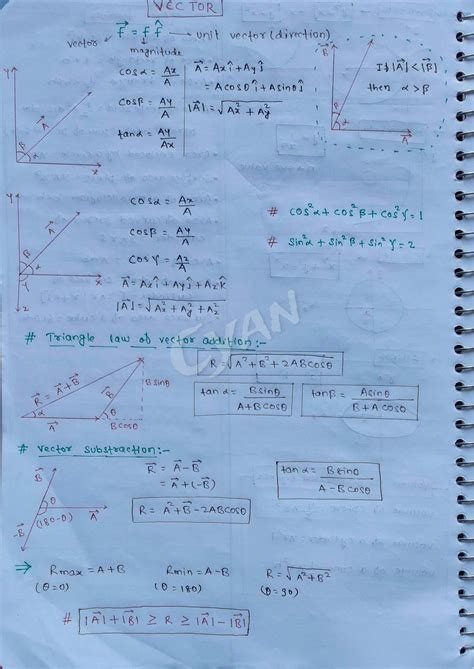 VECTOR
f⃗ = f f̂ → unit vector (direction)
vector
magnitude
cosα = Ax/A
cosβ = Ay/A
tanα = Ay/Ax
A⃗ = Axî + Ayĵ
= Acosθ î + Asinθ ĵ
|A⃗| = √(Ax² + Ay²)
If |A⃗| < |B⃗|
then α > β
Y
A⃗
β
α
x
cosα = Ax/A
cosβ = Ay/A
cosγ = Az/A
A⃗ = Axî + Ayĵ + Azk̂
|A⃗| = √(Ax² + Ay² + Az²)
# cos²α + cos²β + cos²γ = 1
# sin²α + sin²β + sin²γ = 2
GYAN
# Triangle law of vector addition:-
R⃗ = A⃗ + B⃗
Bsinθ
Bcosθ
R = √(A² + B² + 2ABcosθ)
tanα = Bsinθ/(A + Bcosθ)
tanβ = Asinθ/(B + Acosθ)
# vector substraction:-
B⃗
θ
(180-θ)
A⃗
-B⃗
R⃗ = A⃗ - B⃗
= A⃗ + (-B⃗)
R = A² + B² - 2ABcosθ
tanα = Bsinθ/(A - Bcosθ)
⇒ Rmax = A + B
(θ = 0)
Rmin = A - B
(θ = 180)
R = √(A² + B²)
(θ = 90)
# |A⃗| + |B⃗| ≥ R ≥ |A⃗| - |B⃗|